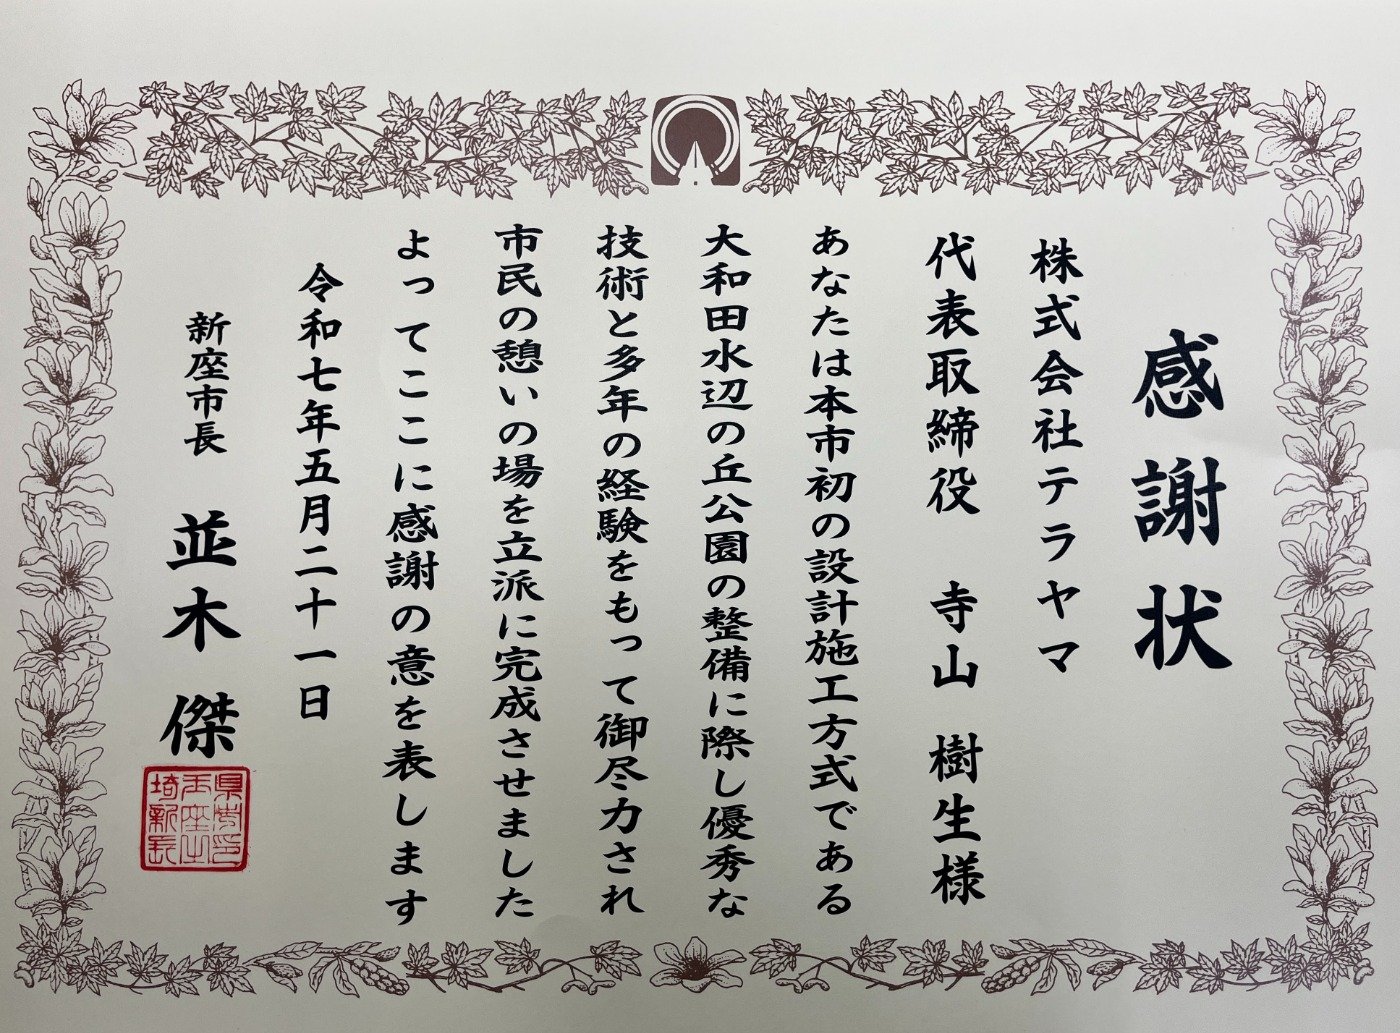 感謝状
株式会社テラヤマ
代表取締役 寺山 樹生様
あなたは本市初の設計施工方式である
大和田水辺の丘公園の整備に際し優秀な
技術と多年の経験をもって御尽力され
市民の憩いの場を立派に完成させました
よってここに感謝の意を表します
令和七年五月二十一日
新座市長 並木 傑
埼玉県新座市長之印